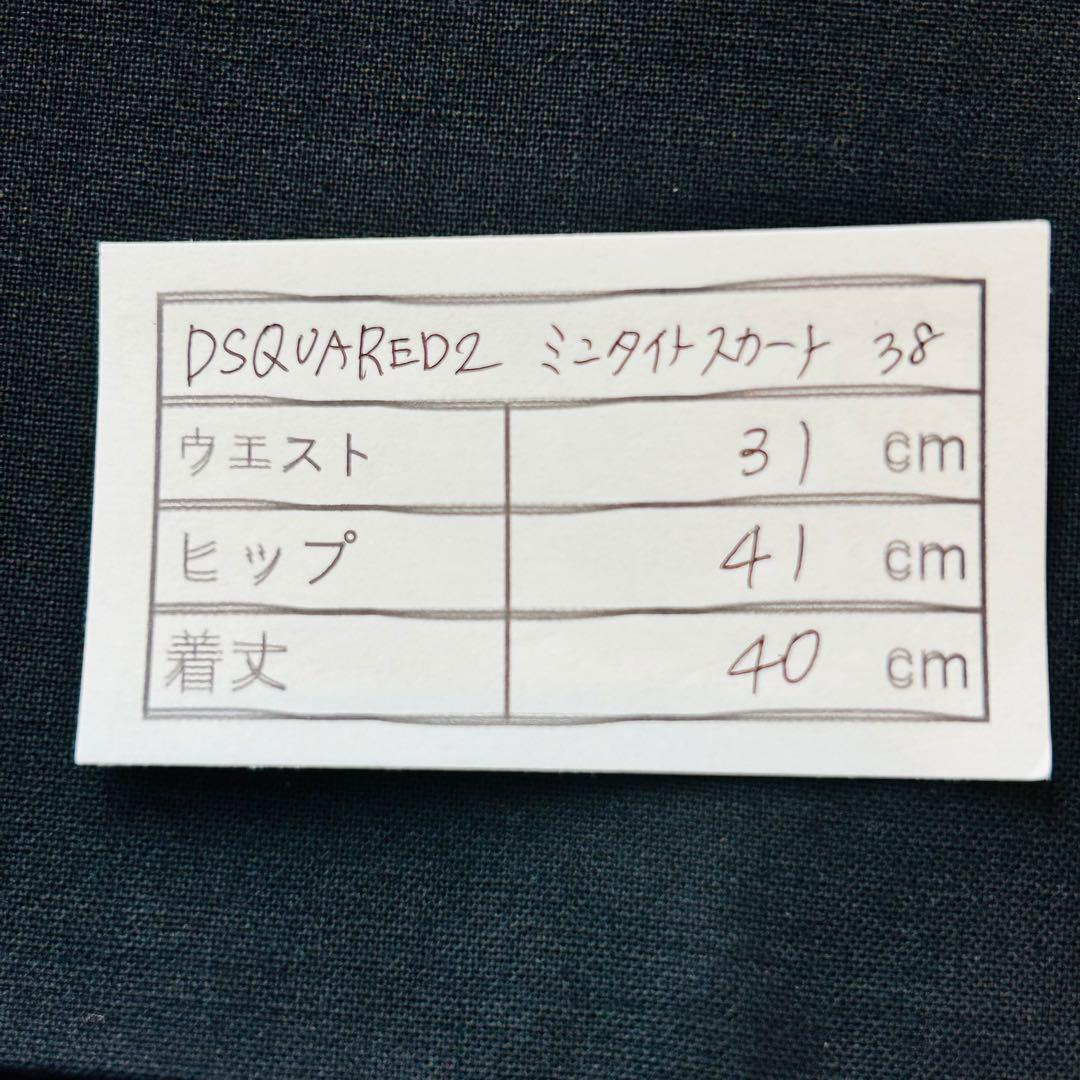 DSQUARED2 ミニタイトスカート 38
ウエスト 31 cm
ヒップ 41 cm
着丈 40 cm